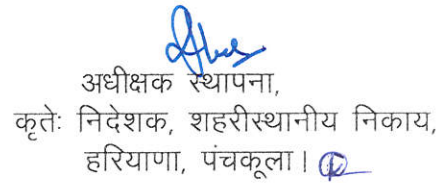 अधीक्षक स्थापना,
कृतेः निदेशक, शहरीस्थानीय निकाय,
हरियाणा, पंचकूला।